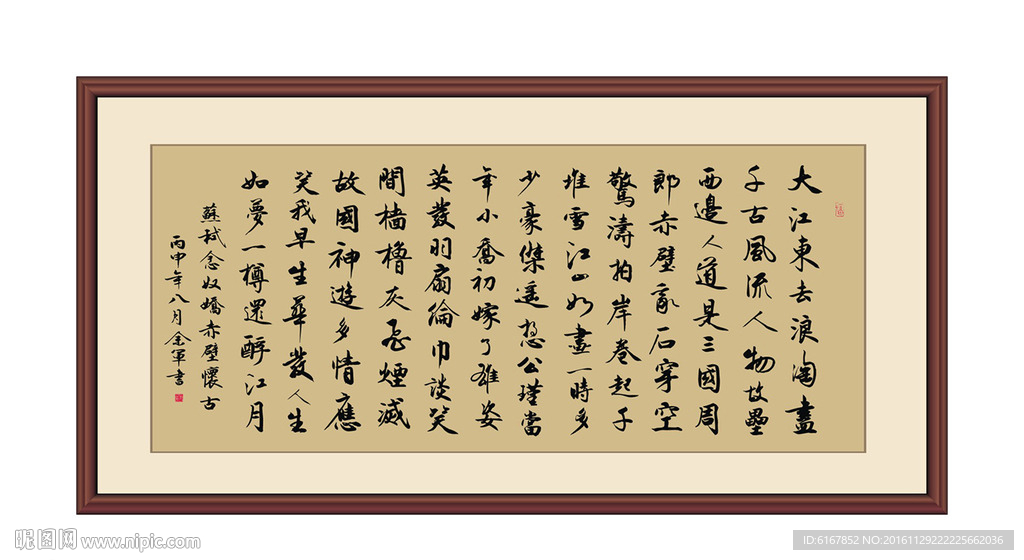 大江東去浪淘盡
千古風流人物故壘
西邊人道是三國周
郎赤壁亂石穿空
驚濤拍岸卷起千
堆雪江山如畫一時多
少豪傑遥想公瑾當
年小喬初嫁了雄姿
英發羽扇綸巾談笑
間檣櫓灰飛煙滅
故國神遊多情應
笑我早生華發人生
如夢一樽還酹江月
蘇軾念奴嬌赤壁懷古
丙申年八月金軍書
昵图网 www.nipic.com
ID:6167852 NO:20161129222225662036